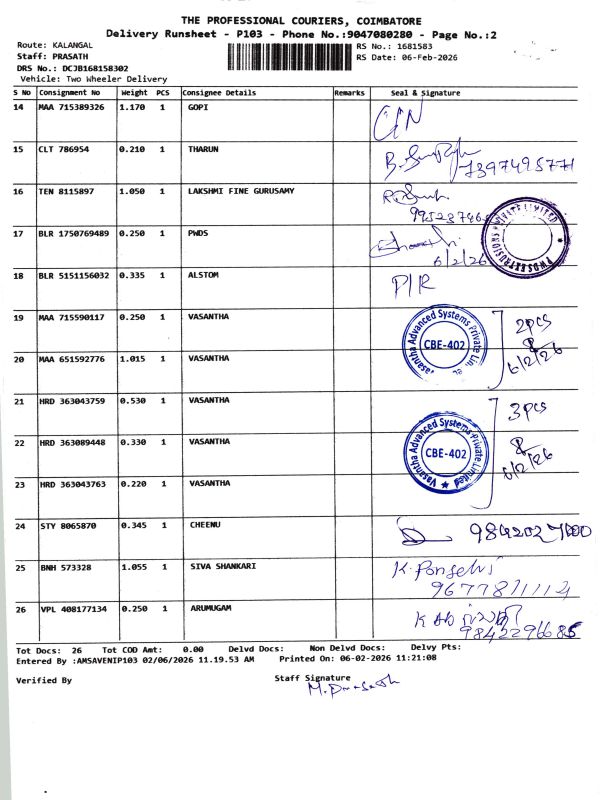 THE PROFESSIONAL COURIERS, COIMBATORE
Delivery Runsheet - P103 - Phone No.:9047080280 - Page No.:2
Route: KALANGAL
RS No.: 1681583
Staff: PRASATH
RS Date: 06-Feb-2026
DRS No.: DCJB168158302
Vehicle: Two Wheeler Delivery
S No Consignment No Weight PCS Consignee Details Remarks Seal & Signature
14 MAA 715389326 1.170 1 GOPI
15 CLT 786954 0.210 1 THARUN
7397495771
16 TEN 8115897 1.050 1 LAKSHMI FINE GURUSAMY
17 BLR 1750769489 0.250 1 PWDS
6/2/26
PWDS EXTRUSIONS PRIVATE LIMITED
18 BLR 5151156032 0.335 1 ALSTOM
P/R
19 MAA 715590117 0.250 1 VASANTHA
Vasantha Advanced Systems Private Lim
CBE-402
2pcs
6/2/26
20 MAA 651592776 1.015 1 VASANTHA
21 HRD 363043759 0.530 1 VASANTHA
3pcs
22 HRD 363089448 0.330 1 VASANTHA
Vasantha Advanced Systems Private Limited
CBE-402
6/2/26
23 HRD 363043763 0.220 1 VASANTHA
24 STY 8065870 0.345 1 CHEENU
25 BNH 573328 1.055 1 SIVA SHANKARI
K. Ponselvi
26 VPL 408177134 0.250 1 ARUMUGAM
Tot Docs: 26 Tot COD Amt: 0.00 Delvd Docs: Non Delvd Docs: Delvy Pts:
Entered By :AMSAVENIP103 02/06/2026 11.19.53 AM Printed On: 06-02-2026 11:21:08
Verified By
Staff Signature
M. Prasath